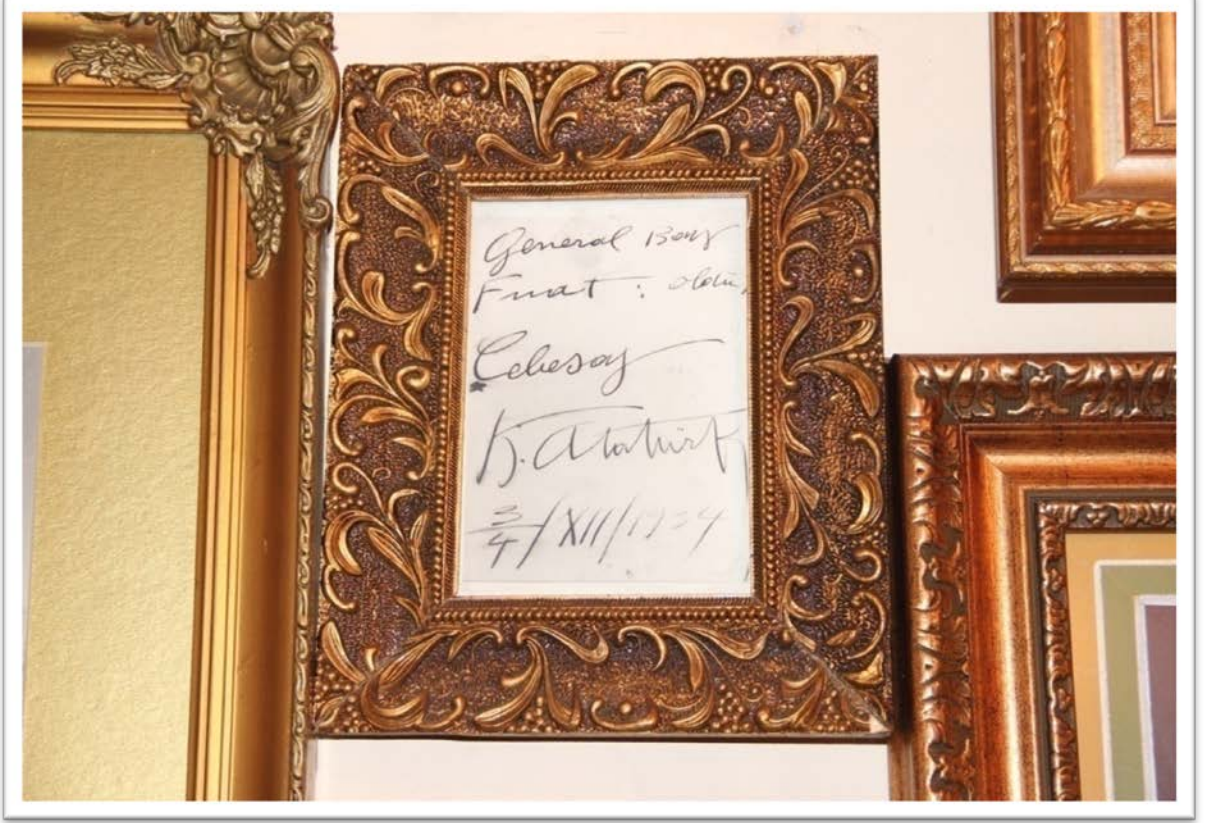 General Bay
Fuat : oldu,
Cebesoy
K. Atatürk
3/4/XII/1934